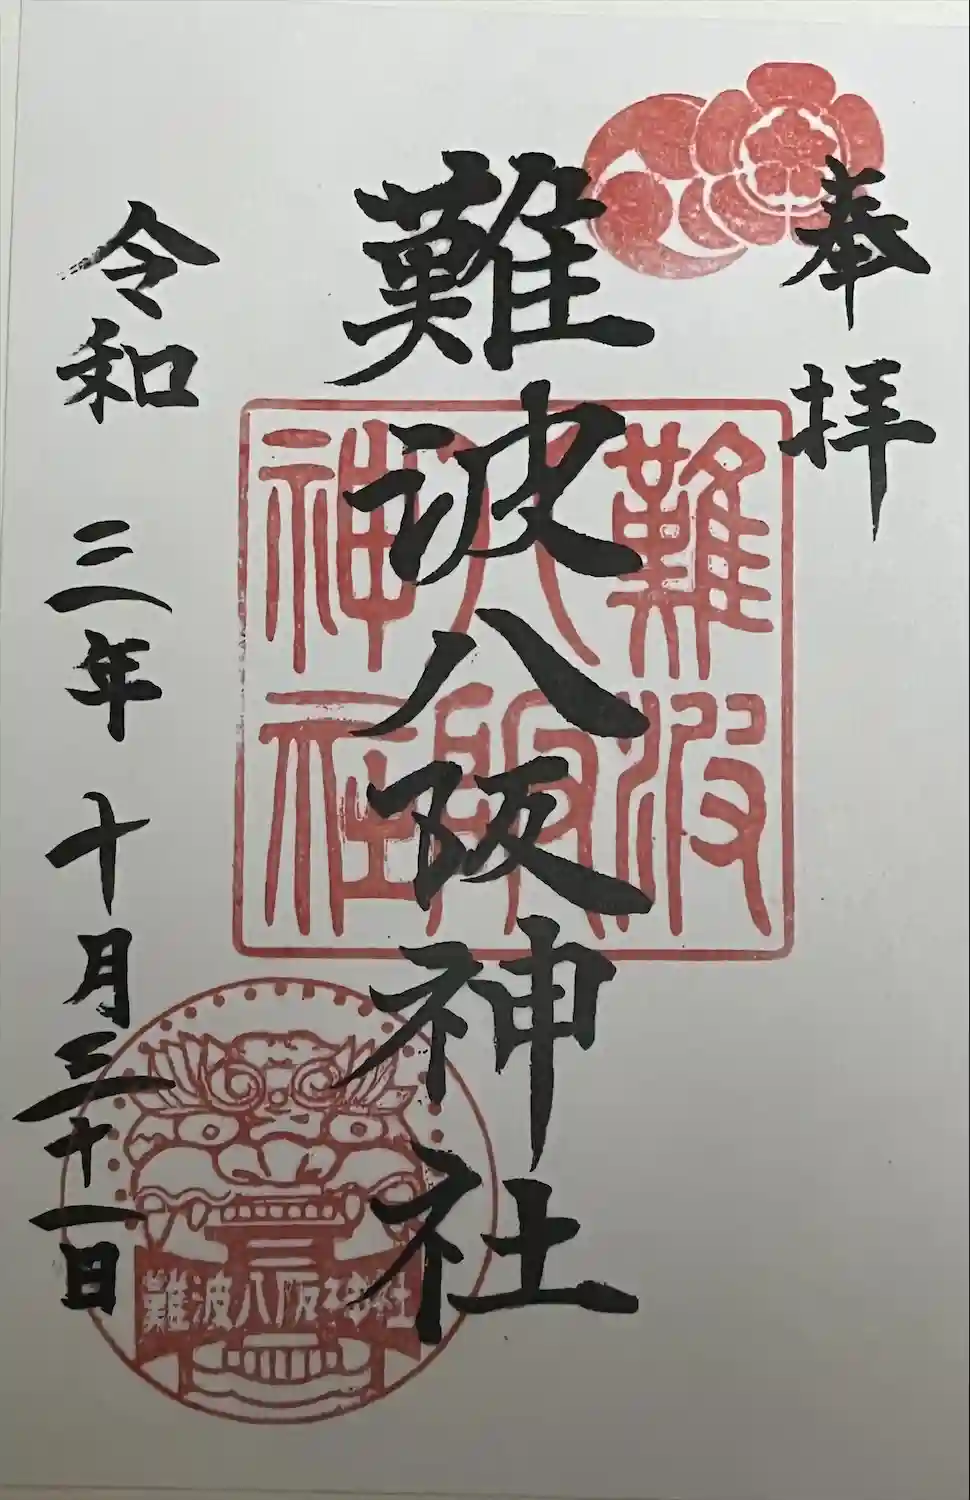 奉拝
難波八阪神社
令和三年十月三十一日
難波
八阪
神社
難波八阪神社